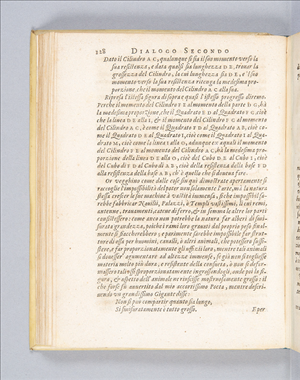 128 DIALOGO SECONDO
Dato il Cilindro A C, qualunque si sia il suo momento verso la
sua resistenza, e data qualsisia lunghezza D E, trovar la
grossezza del Cilindro, la cui lunghezza sia D E, e 'l suo
momento verso la sua resistenza ritenga la medesima pro-
porzione, che il momento del Cilindro A C alla sua.
Ripresa l'istessa figura di sopra e quasi l'istesso progresso diremo.
Perche il momento del Cilindro F E al momento della parte D G, hà
la medesima proporzione, che il Quadrato E D al Quadrato
che la linea D E alla I, & il momento del Cilindro
Cilindro A C, è come il Quadrato F D al Quadrato A B, cioè co-
me il Quadrato
drato
zione della linea D E alla O, cioè del Cubo D E al Cubo I, cioè
del Cubo di F D al Cubo di A B, cioè della resistenza della base F D
alla resistenza della base A B, ch'è quello che si doueua fare.
Or veggbino come dalle cose fin quì dimostrate apertamente si
raccoglie l'impossibilità del poter non solamente l'arte, mà la natura
stessa crescer le sue machine à vastità immensa, sì che impossibil sa-
rebbe fabbricar Nauilij, Palazzi, ò Templi vastissimi, li cui remi,
antenne, trauamenti, catene di ferro, & in somma le altre lor parti
consistessero: come anco non potrebbe la natura far alberi di smisu-
rata grandezza, poiche i rami loro grauati dal proprio peso final-
mente si fiaccherebbero; e parimente sarebbe impossibile far strut-
ture di ossa per huomini, caualli, ò altri animali, che potessero sussi-
stere, e far proporzionatamente gli offizii loro, mentre tali animali
si douesser' agumentare ad altezze immense, se già non si togliesse
materia molto più dura, e resistente della consueta, ò non si defor-
massero tali ossi sproporzionatamente ingrossandogli, onde poi la fi-
gura, & aspetto dell'animale ne riuscisse mostruosamente grosso: il
che forse fù auuertito dal mio accortissimo Poeta, mentre descri-
uendo un grandissimo Gigante disse:
Non si può compartir quanto sia lungo,
Sì smisuratamente è tutto grosso.
E per